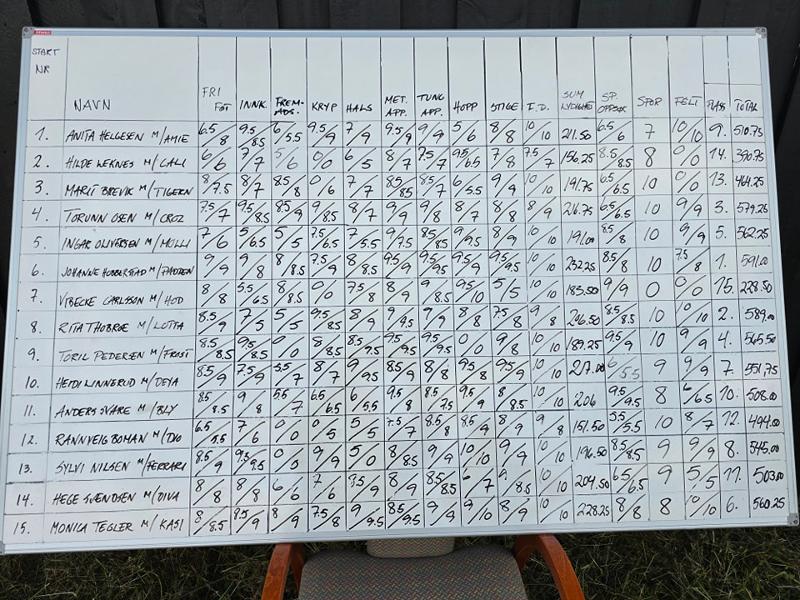 START NR NAVN FRI FØT INNK. FREM-ADS. KRYP HALS MET. APP. TUNG APP. HOPP STIGE I.D. SUM LYDIGHET SP. OPPSØK SPOR FELT PLASS TOTAL
1. ANITA HELGESEN M/AMIE 6.5/8 9.5/8.5 6/5.5 9.5/9 7/9 9.5/9 9/9 5/6 8/8 10/10 211.50 6.5/6 7 10/10 9. 510.75
2. HILDE WEKNES M/LALI 6/6 7/7 5/6 0/0 6/5 8/7 7.5/7 9.5/6.5 7/8 7.5/7 156.25 8.5/8.5 8 0/0 14. 390.75
3. MARIT BREVIK M/TIGERN 8/7.5 8/7 8.5/8 0/6 7/7 8.5/8.5 8.5/7 6/5.5 9/9 10/10 191.75 6.5/6.5 10 0/0 13. 464.25
4. TORUNN OSEN M/CROZ 7.5/7 9.5/8.5 8.5/9 9/8.5 8/7 9/9 9/8 8/7 8/8 8/9 216.75 6.5/6.5 10 9/9 3. 579.25
5. INGAR OLIVERSEN M/MULLI 7/6 5/6.5 5/5 7.5/6.5 7/5.5 9/7.5 8.5/8.5 9/9.5 8/9 10/10 191.00 8.5/8 10 9/9 5. 562.25
6. JOHANNE 9/9 9/8 8/8.5 7.5/9 8/8.5 9.5/9 9.5/9.5 9/9.5 9.5/9.5 10/10 232.25 8.5/8 10 7.5/8 1. 591.00
7. VIBECKE CARLSSON M/HOD 8/8 5.5/6.5 8/8.5 0/0 7.5/8 8/9 9/8.5 9.5/10 5/5 10/10 183.50 9/9 0 0/0 15. 228.50
8. RITA THOBROE M/LOTTA 8.5/9 7/5 5/5 9.5/8.5 8/9 9/9.5 9/9 8/8 7.5/8 9/8 206.50 8.5/8.5 10 10/10 2. 589.00
9. TORIL PEDERSEN M/FROST 8.5/8.5 9.5/8.5 0/0 8/8 8.5/9.5 9.5/9.5 9/8 0/0 9/8 10/10 189.25 9.5/9 10 9/9 4. 565.50
10. HEIDI LINNERUD M/DEYA 8.5/9 7.5/9 5.5/7 8/7 9/9.5 8.5/9 8/8 9.5/8 9.5/9 10/10 217.00 6/5.5 9 9/9 7. 551.75
11. ANDERS SVARE M/BLY 8.5/8.5 9/8 5.5/7 6.5/6.5 6/5.5 9.5/8 8.5/7.5 9/9 8/8.5 10/10 206 9.5/9.5 8 6/6.5 10. 508.00
12. RANNVEIG BOMAN M/ 6.5/5.5 7/6 0/0 0/5 5/5 7.5/7 8.5/8 8.5/9 9/8 9/8 151.50 5.5/5.5 10 8/7 12. 494.00
13. SYLVI NILSEN M/FERRARI 8.5/9 9.5/9.5 0/5 9/9 5/0 8/8.5 9/9 10/10 9/9 10/10 196.50 8.5/8.5 9 9/9 8. 545.00
14. HEGE SVENDSEN M/DIVA 8/8 8/8 6/6 7/6 7.5/9 8/9 8.5/8.5 6/7 9/8.5 10/10 204.50 6.5/6.5 9 5/5 11. 503.00
15. MONICA TEGLER M/KASI 8/8.5 8.5/9 8/9 7.5/8 9/9.5 8.5/9.5 9/9 9/10 9/9 10/10 228.25 8/8 8 10/10 6. 560.25